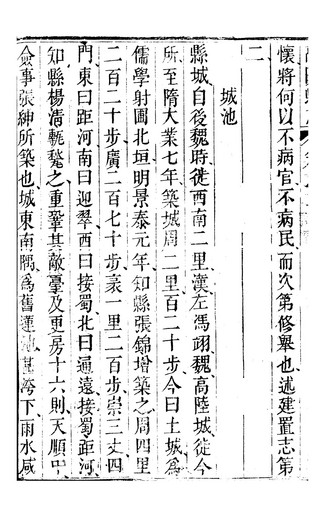 懷將何以不病官不病民而次第修舉也述建置志第
二
城池
縣城自後魏時徙西南二里漢左馮翊魏高陸城徙今
所至隋大業七年築城周二里百二十步今曰土城爲
儒學射圃北垣明景泰元年知縣張錦增築之周四里
二百二十步廣二百七十步袤一里二百步崇三丈四
門東曰距河南曰迎翠西曰接蜀北曰通遠接蜀距河
知縣楊淸甎甃之重鞏其敵臺及更房十六則天順中
僉事張紳所築也城東南隅爲舊蓮池甚洿下雨水咸